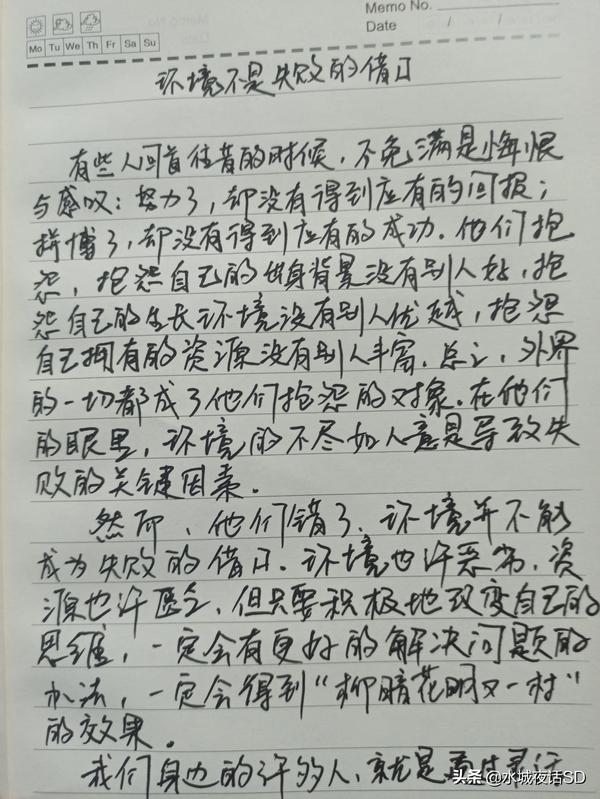 Memo No.
Date / /
Mo Tu We Th Fr Sa Su
环境不是失败的借口
有些人回首往昔的时候，不免满是悔恨
与感叹：努力了，却没有得到应有的回报；
拼博了，却没有得到应有的成功。他们抱
怨，抱怨自己的出身背景没有别人好，抱
怨自己的生长环境没有别人优越，抱怨
自己拥有的资源没有别人丰富。总之，外界
的一切都成了他们抱怨的对象。在他们
的眼里，环境的不尽如人意是导致失
败的关键因素。
然而，他们错了，环境并不能
成为失败的借口。环境也许恶劣，资
源也许匮乏，但只要积极地改变自己的
思维，一定会有更好的解决问题的
办法，一定会得到“柳暗花明又一村”
的效果。
我们身边的许多人，就是通过灵活
头条@水城夜话SD